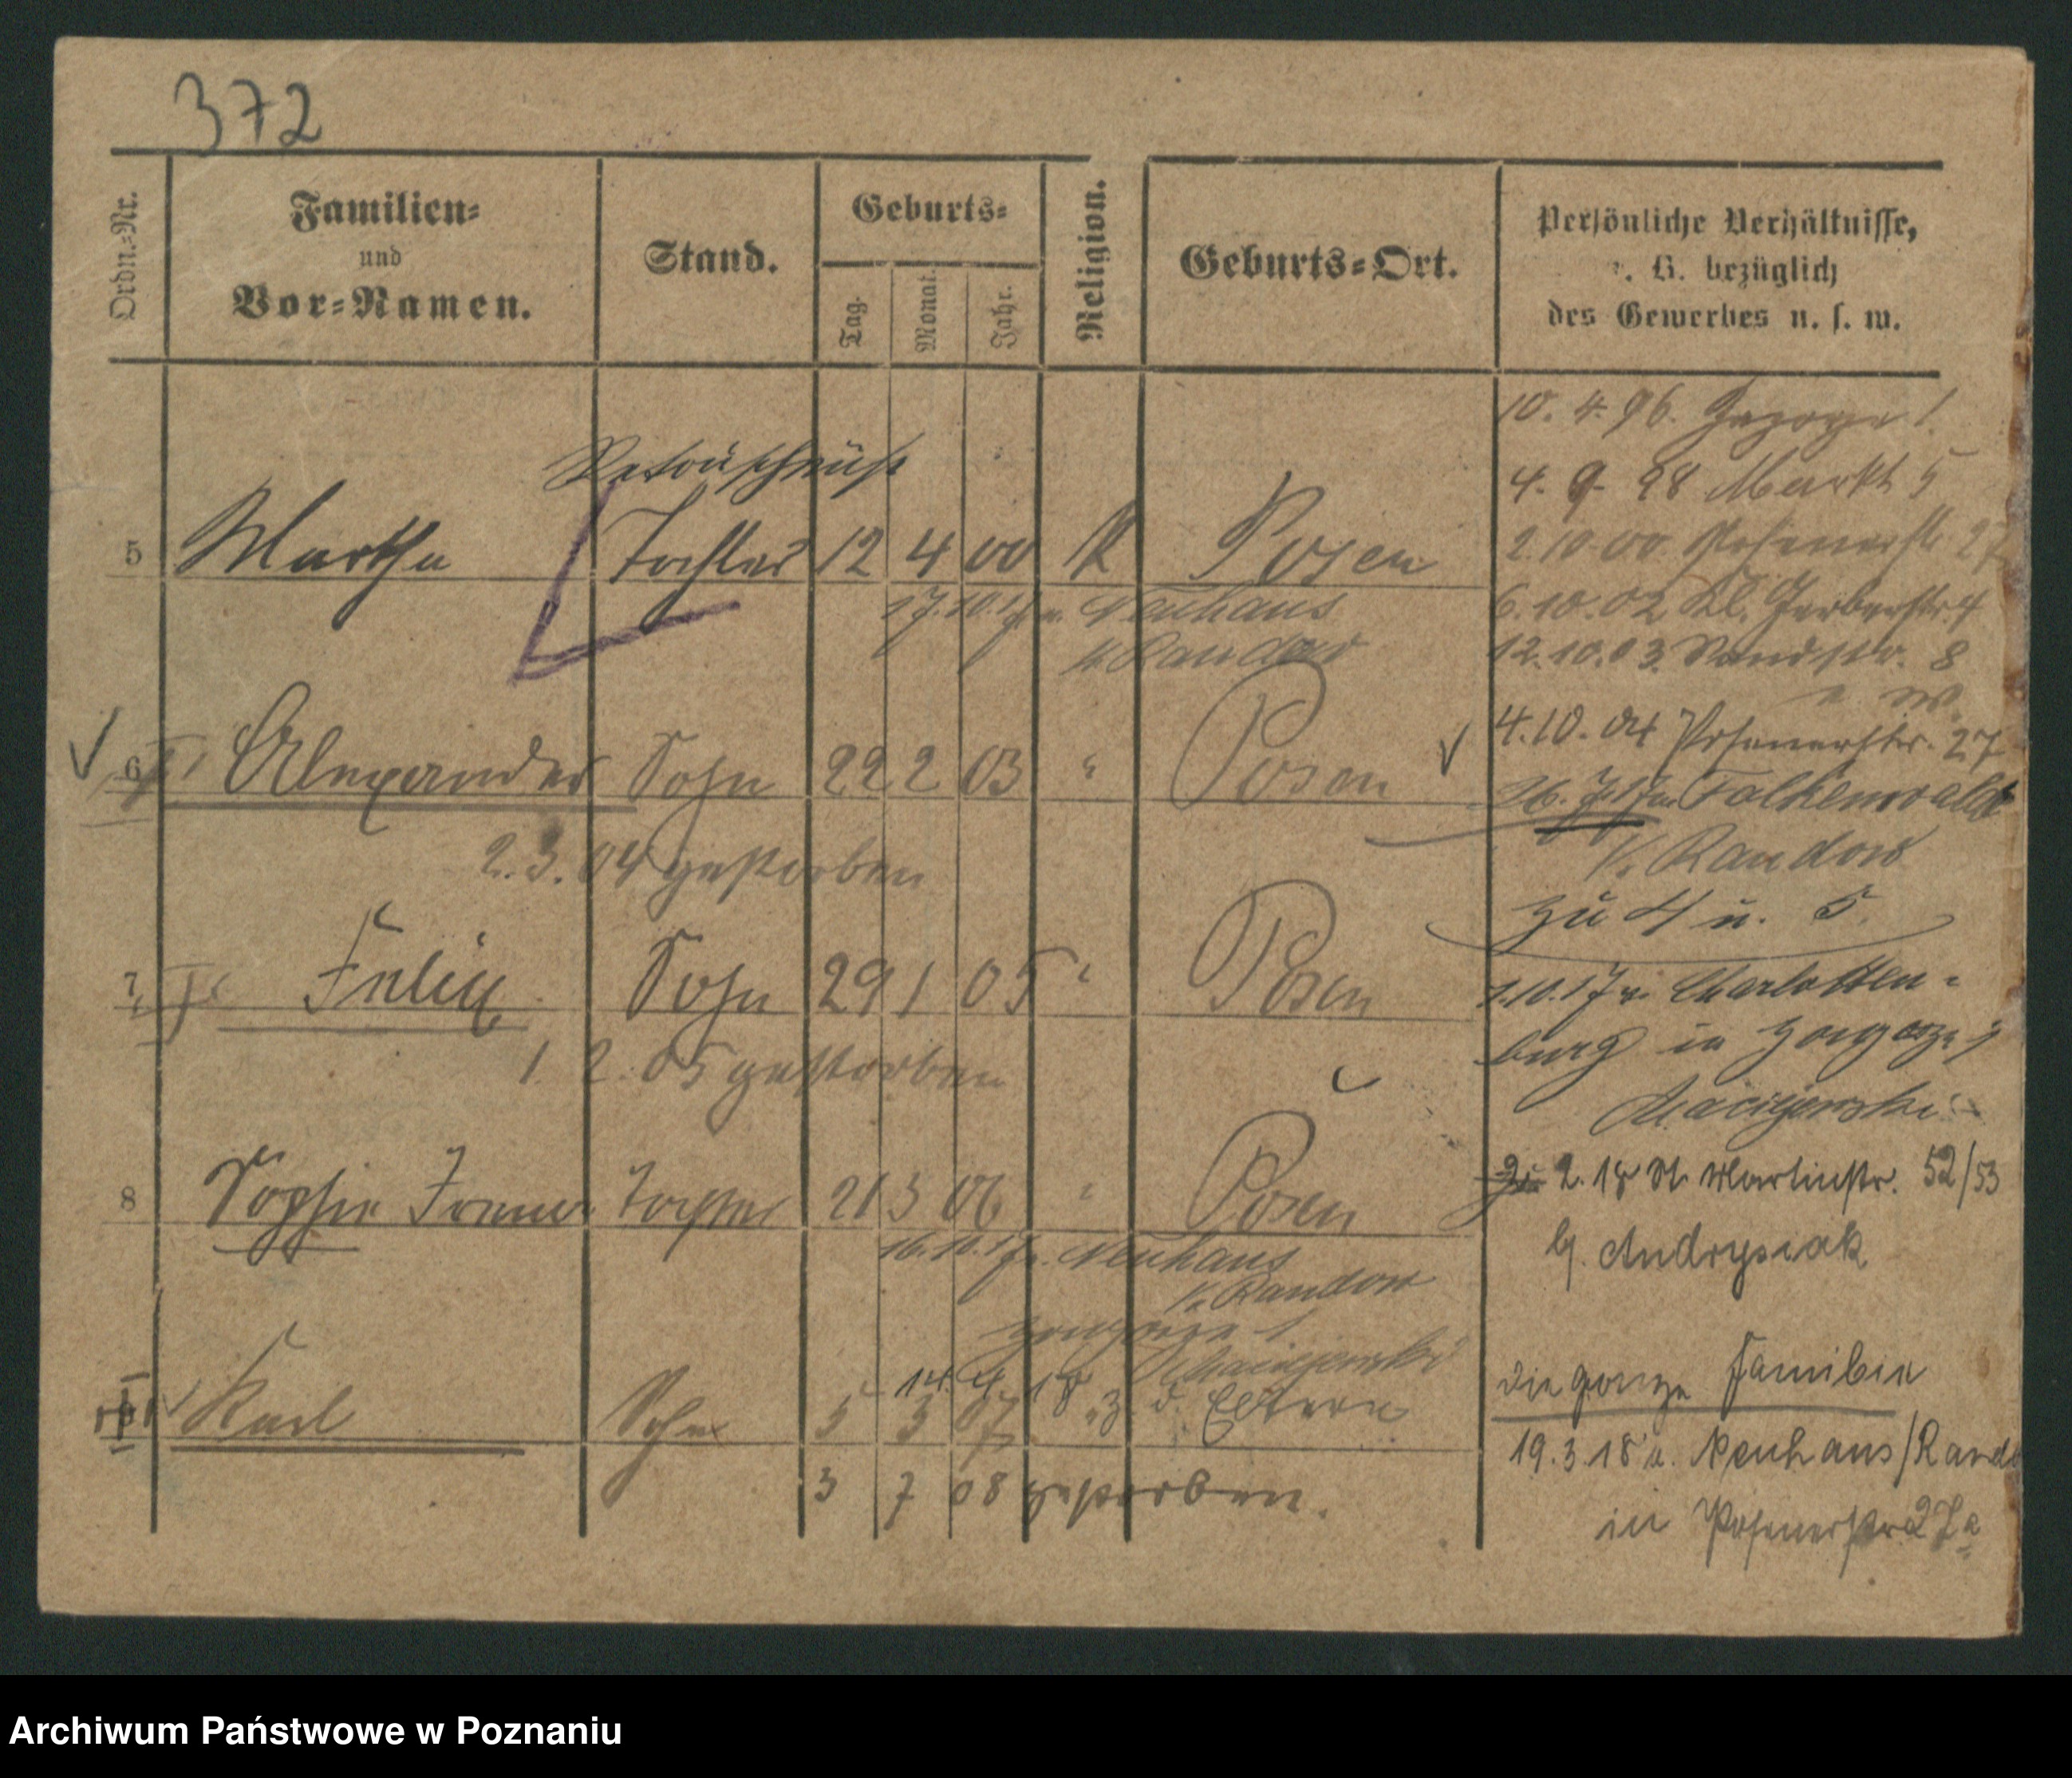 372
Ordn.-Nr.
Familien-
und
Vor-Namen.
Stand.
Geburts-
Tag.
Monat.
Jahr.
Religion.
Geburts-Ort.
Persönliche Verhältnisse,
z. B. bezüglich
des Gewerbes u. s. w.
10. 4. 96.
4. 9. 98 Markt 5
2.10.00 Posenerstr. 27
6.10.02 Kl. Gerberstr. 4
12.10.03. 8
4.10.04 Posenerstr. 27
26. 7. 17 Falkenwalde
K. Randow
zu 4 u. 5.
1.10.17 v. Charlotten-
burg in
Maciejewski
2. 18 St. Martinstr. 52/53
b. Andrysiak
die ganze Familie
19.3.18 v. Neuhaus/Rand
in Posenerstr 27a
5 Martha Tochter 12 4 00 K Posen
17.10.17 v. Neuhaus
K. Randow
6 Alexander Sohn 22 2 03 " Posen
2.3.04 gestorben
7 Felix Sohn 29 1 05 " Posen
1. 2. 05 gestorben
8 Sophie Tochter 21 3 06 " Posen
16.10.17 v. Neuhaus
K. Randow
Maciejewski
14. 4. 18 z. d. Eltern
Karl Sohn 5 3 07
3 7 08 gestorben.
Archiwum Państwowe w Poznaniu